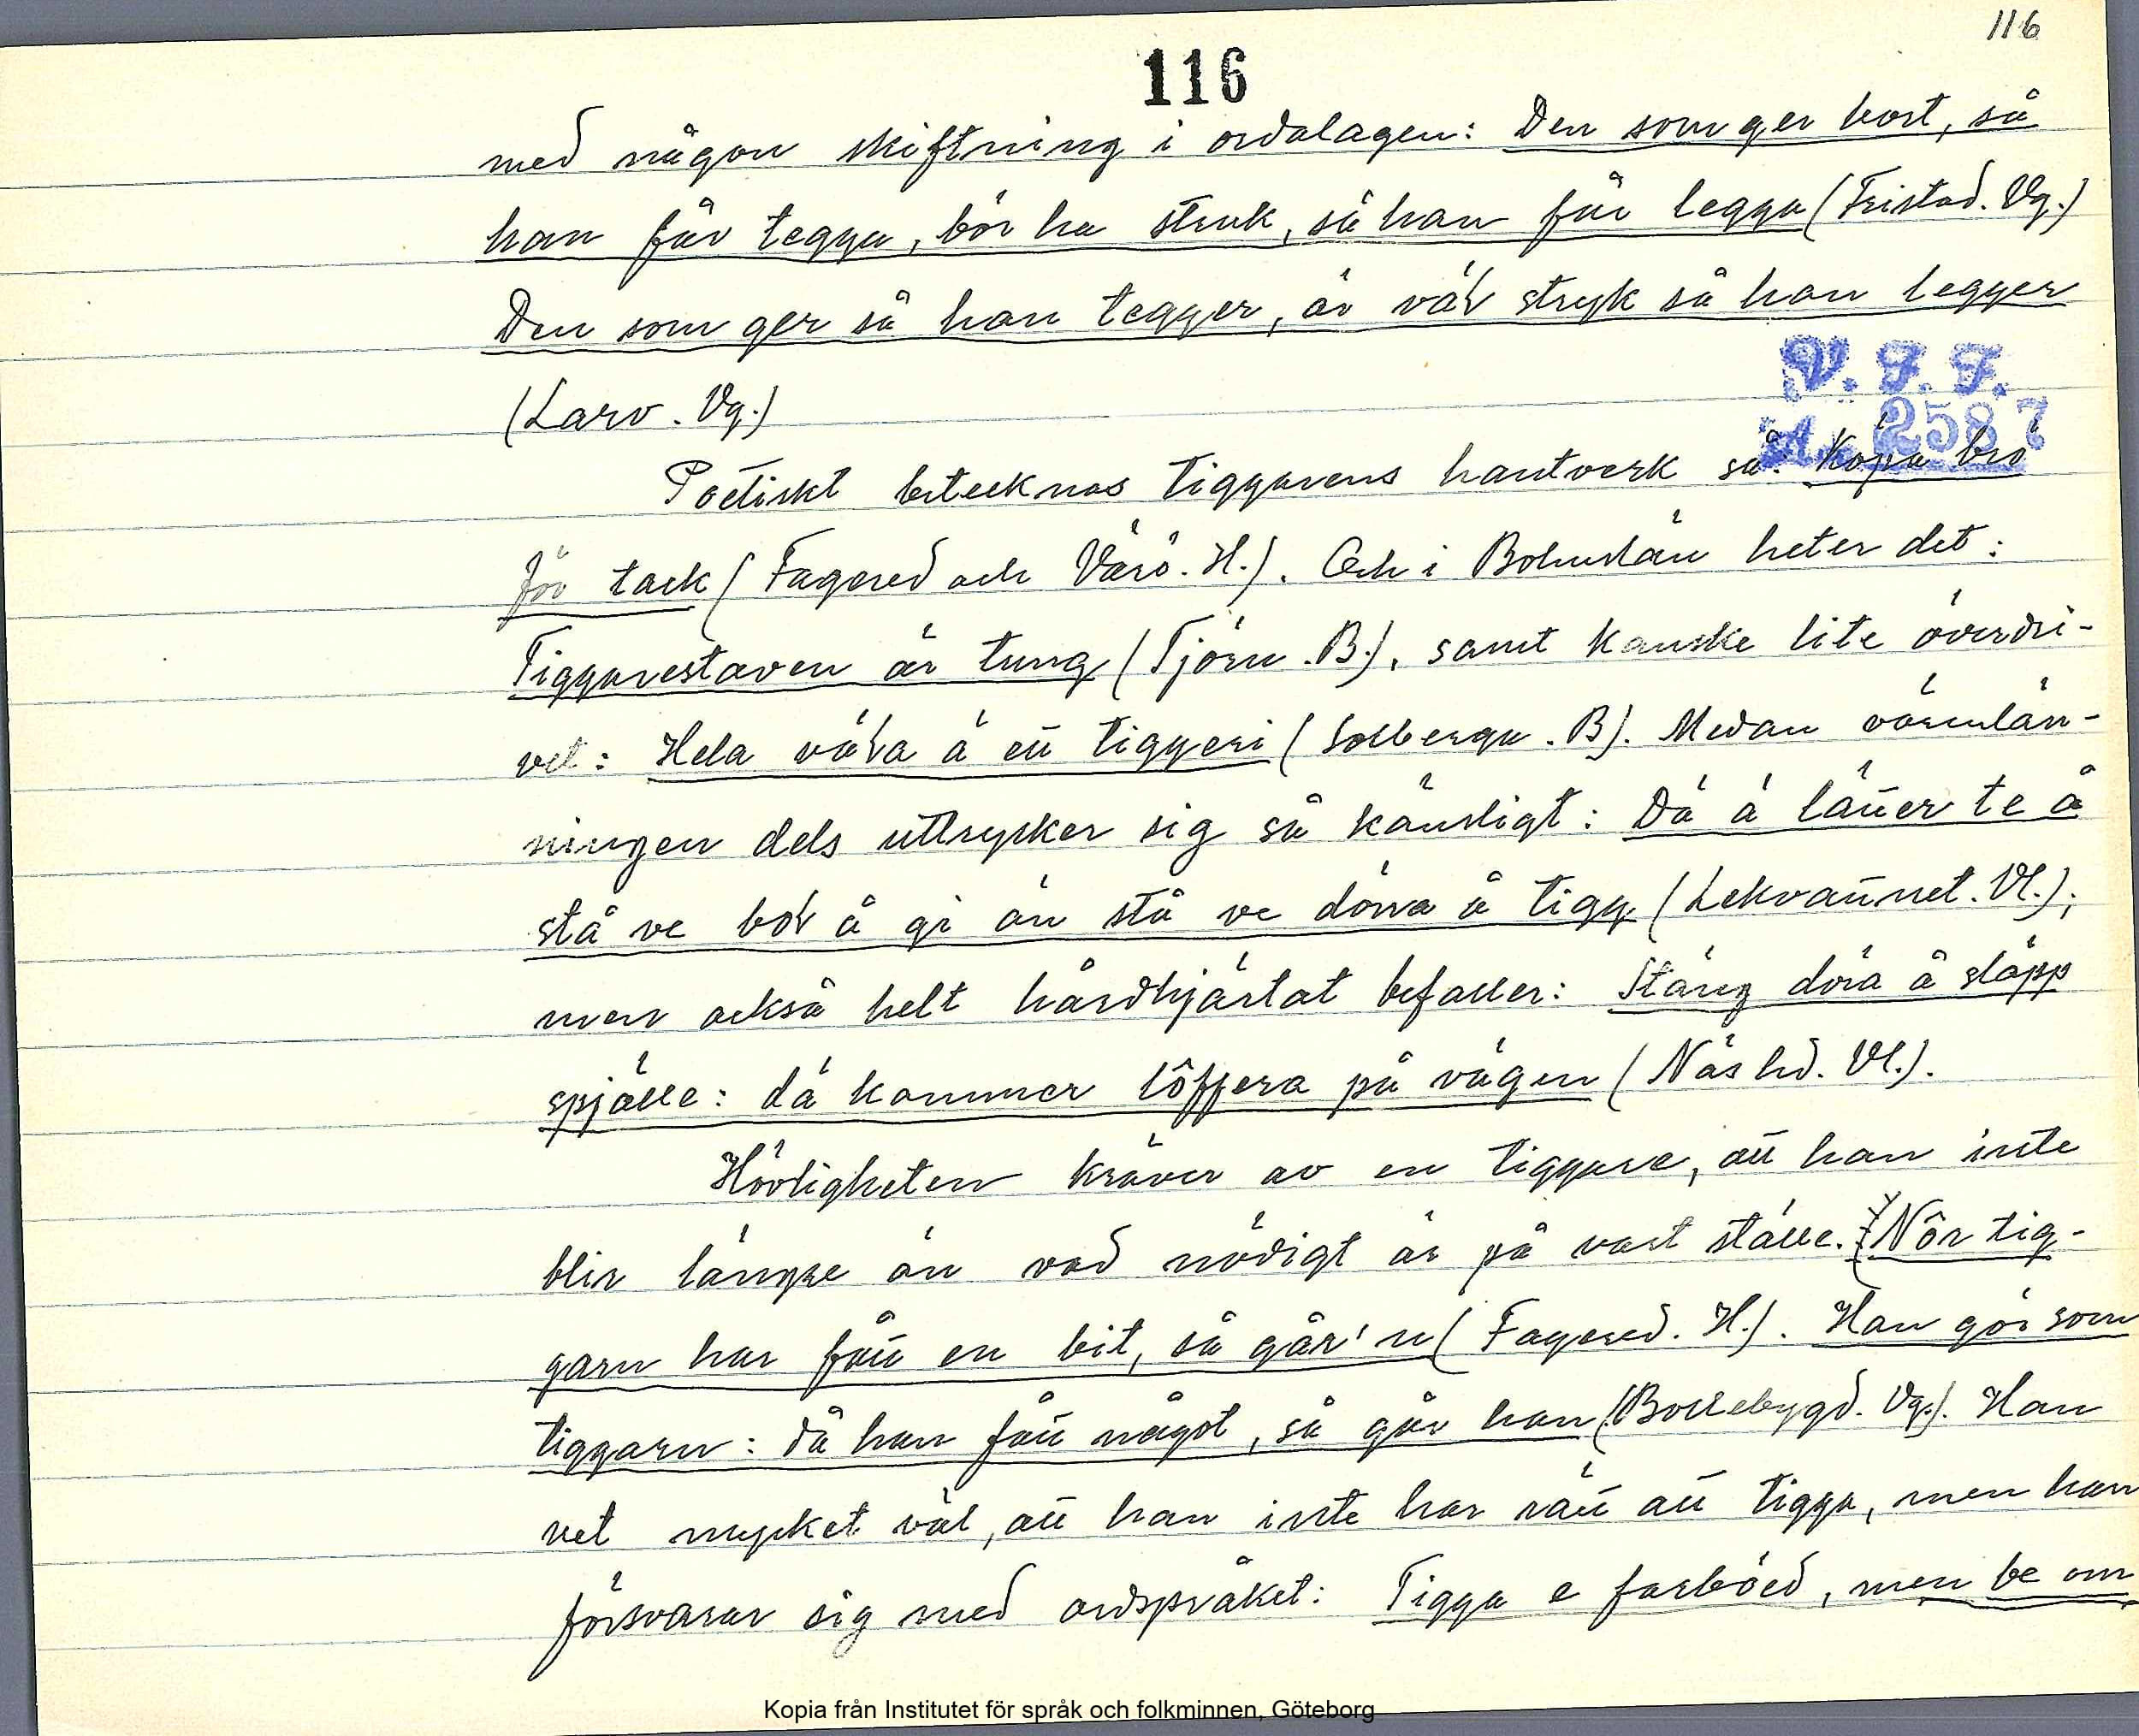 116
116
med någon skiftning i ordalagen: Den som ger bort, så
han får tegga, bör ha struk, så han får legga (Fristad. Vg.)
Den som ger så han tegger, är väl stryk så han legger
V. F. F.
(Larv. Vg.)
A. 2587
Poetiskt betecknas tiggarens hantverk så: Köpa brö
för tack (Fagered och Värö. H.). Och i Bohuslän heter det:
Tiggarestaven är tung (Tjörn. B.), samt kanske lite överdri-
vet: Hela väla ä ett tiggeri (Solberga. B). Medan värmlän-
ningen dels uttrycker sig så känsligt: Dä ä lätter te å
stå ve bol å gi än stå ve dörra å tigg (Lekvattnet. Vl.);
men också helt hårdhjärtat befaller: Stäng döra å släpp
spjälle: dä kommer löffera på vägen (Näs hd. Vl.).
Hövligheten kräver av en tiggare, att han inte
blir längre än vad nödigt är på vart ställe. Nôr tig-
garn har fått en bit, så går'n (Fagered. H.). Han gör som
tiggarn: då han fått något, så går han (Bollebygd. Vg.). Han
vet mycket väl, att han inte har rätt att tigga, men han
försvarar sig med ordspråket: Tigga e forböed, men be om
Kopia från Institutet för språk och folkminnen, Göteborg